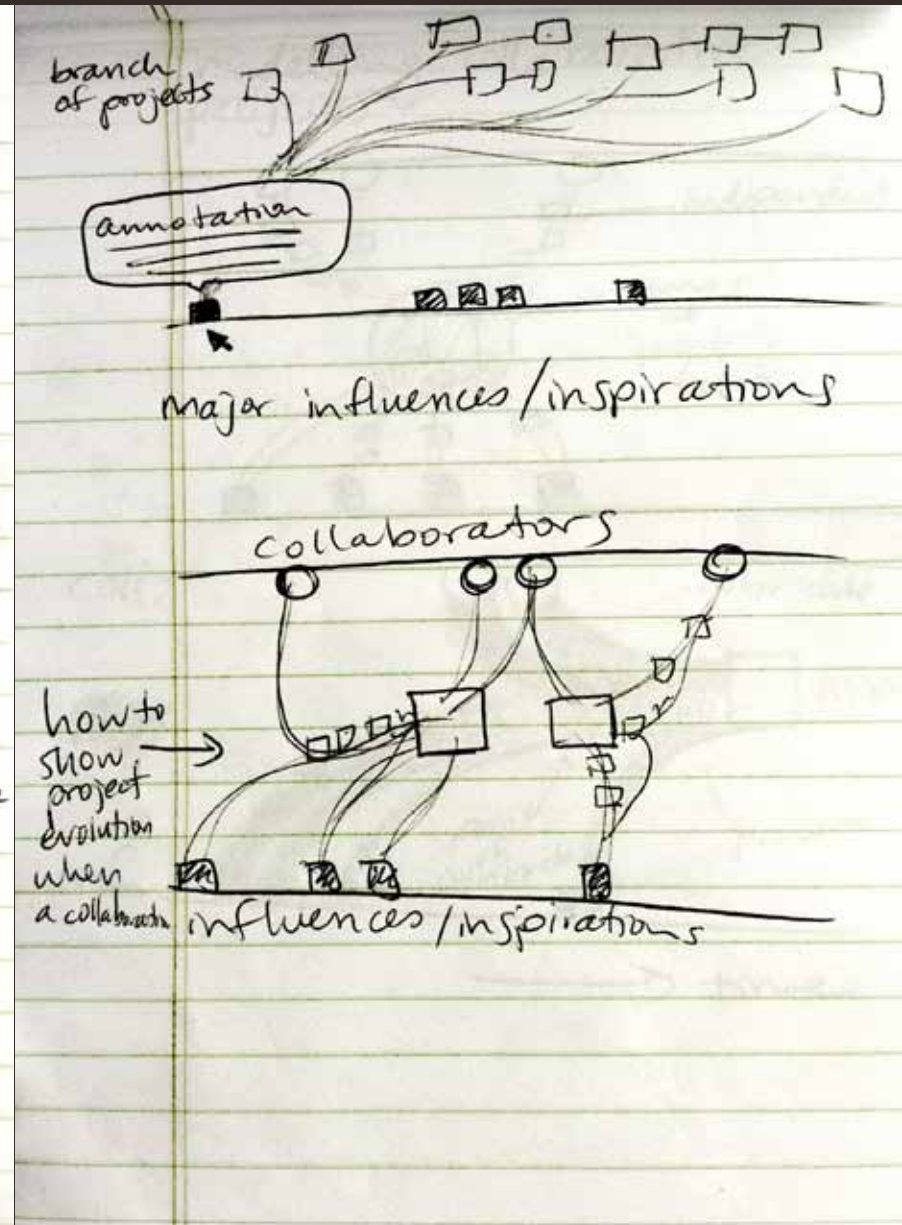 branch
of projects
annotation
major influences/inspirations
collaborators
how to
show
project
evolution
when
a collaboration
influences/inspirations